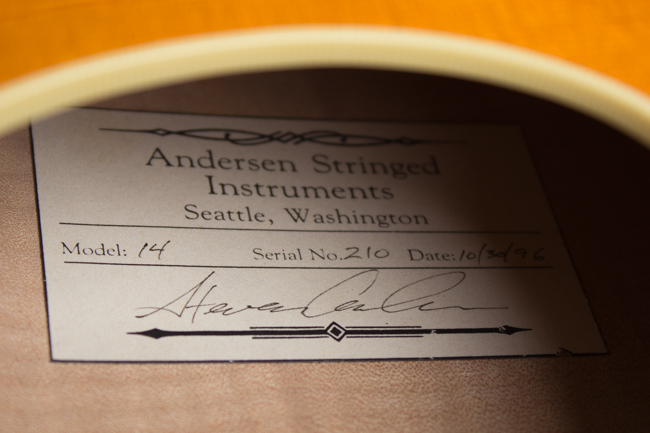 Andersen Stringed
Instruments
Seattle, Washington
Model: 14 Serial No. 210 Date: 10/30/96
Steven Andersen